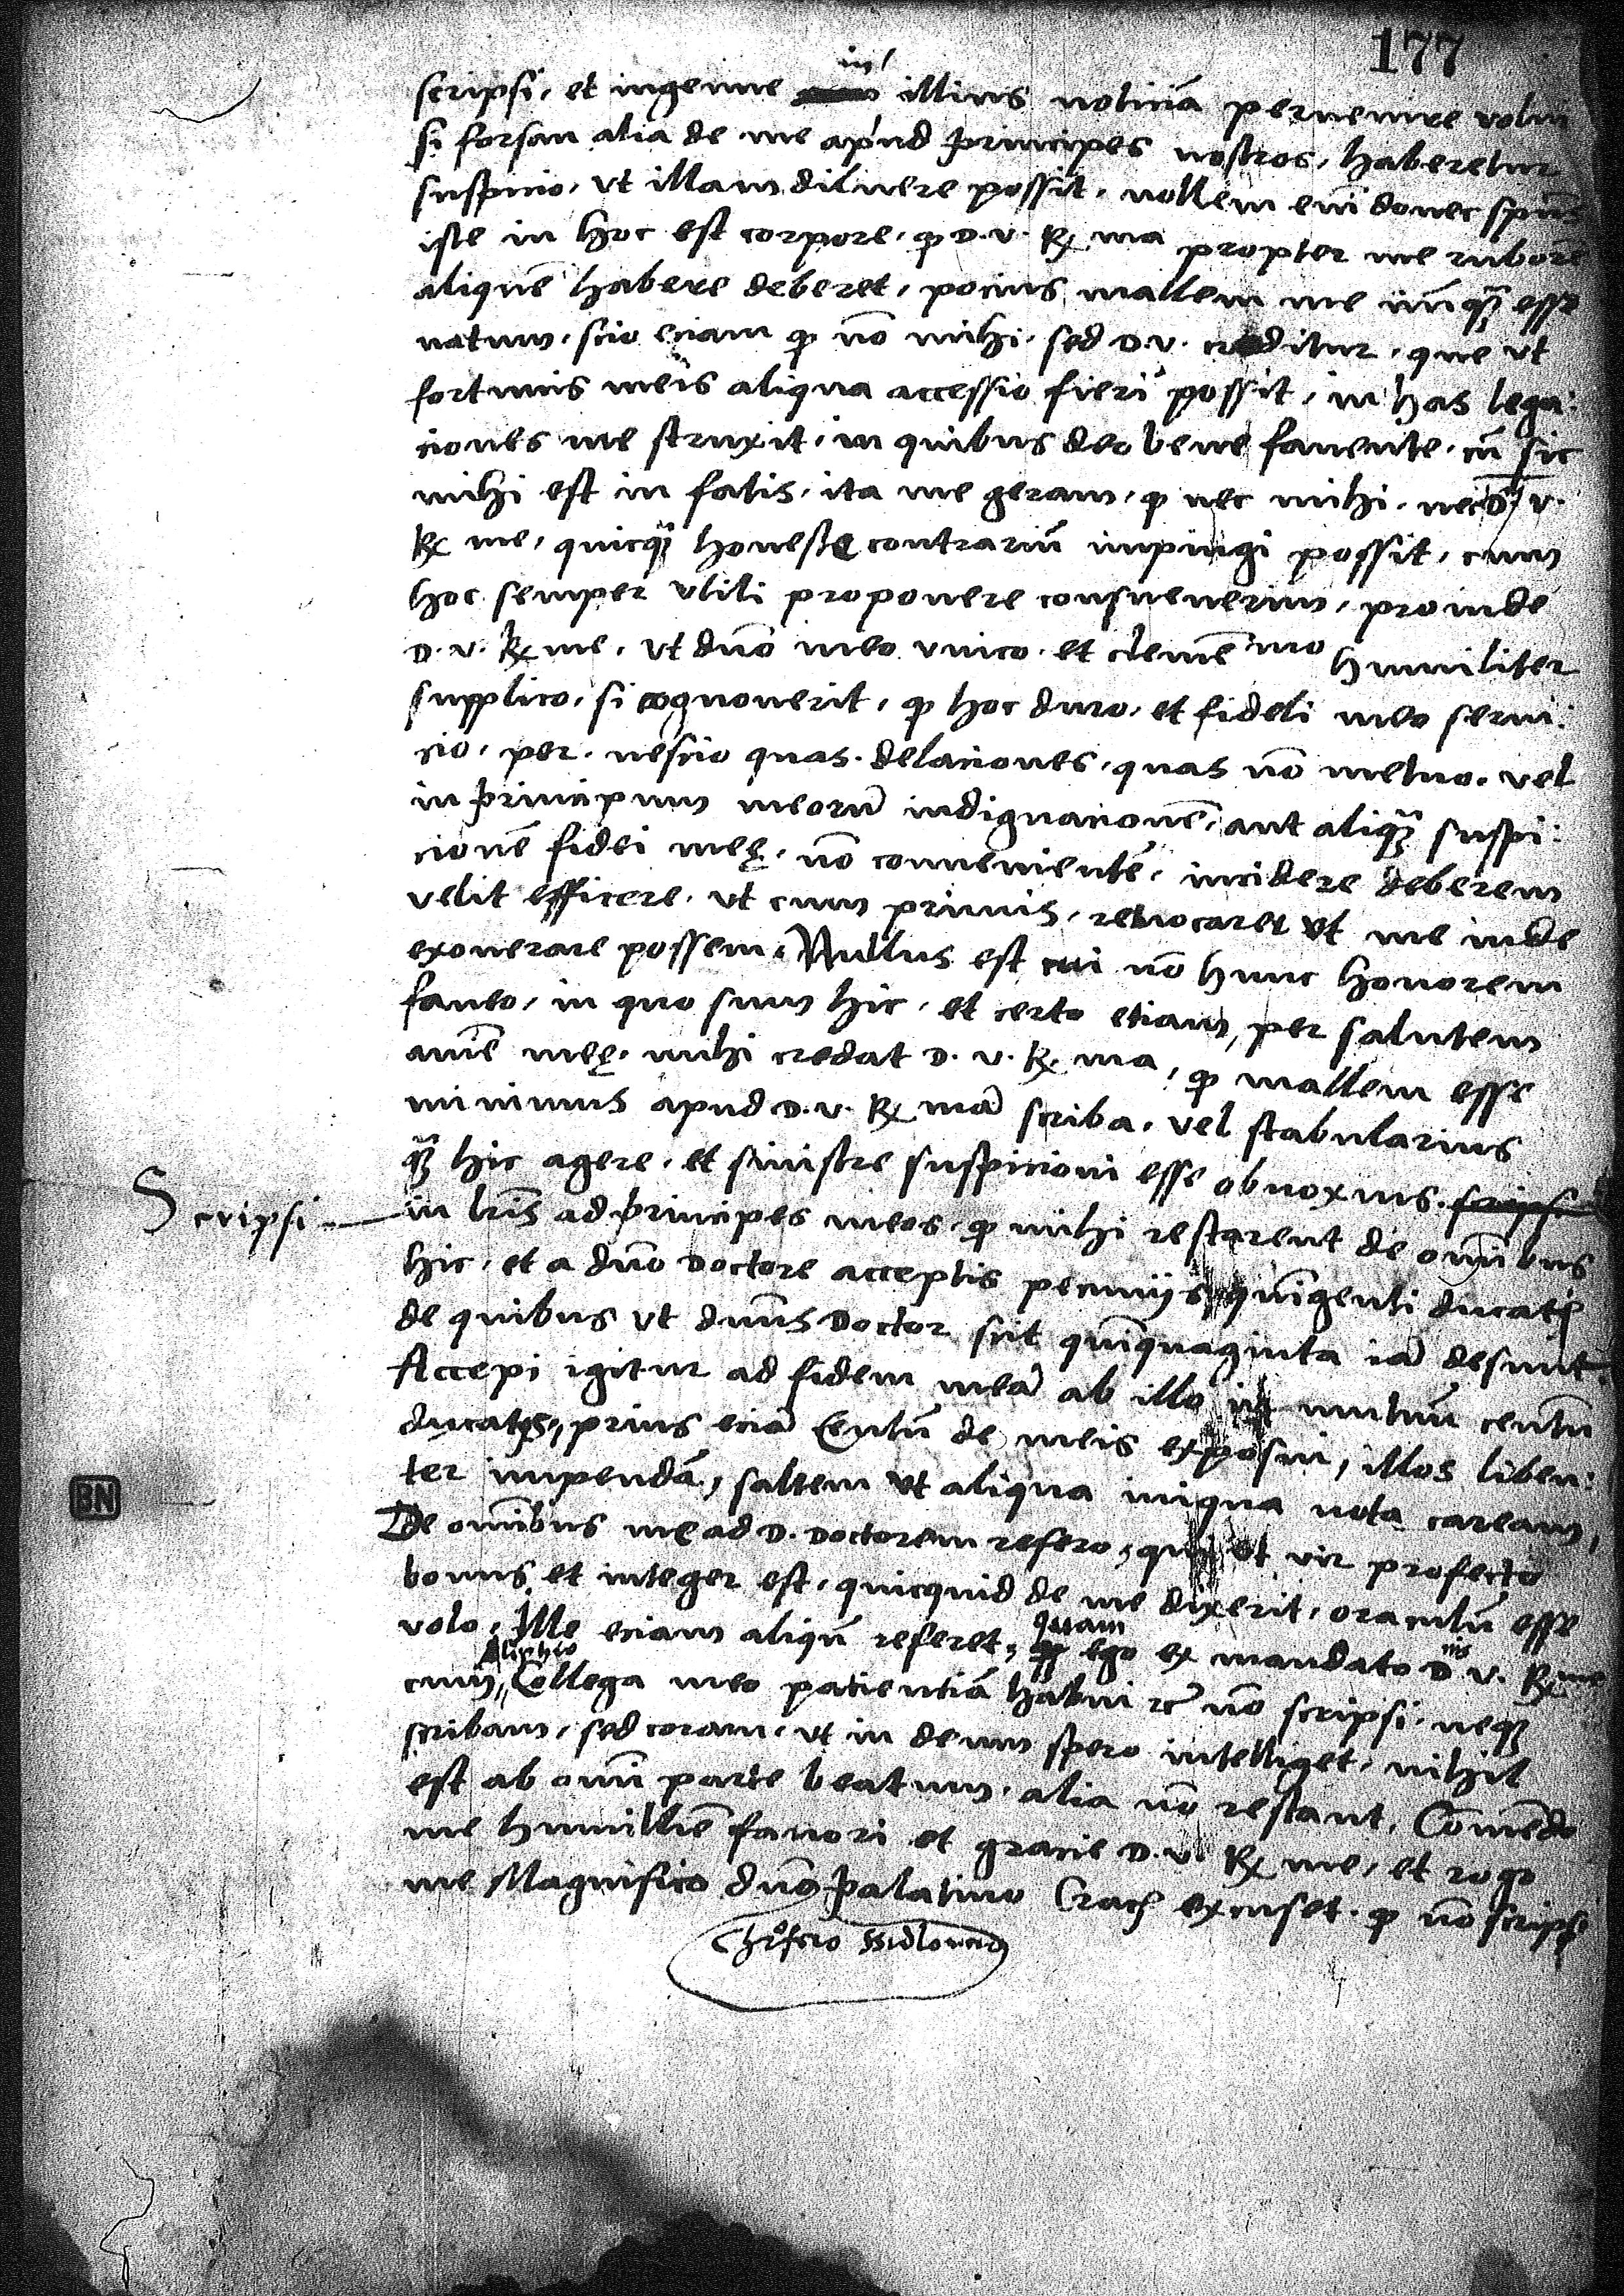 177
in
scripsi, et ingenue illius noticiā pervenire volui
si forsan alia de me apud principes nostros, haberetur
suspicio, vt illam diluere possit, nollem eni donec spūs
iste in hoc est corpore, ꝙ D. v. Rx ma propter me ruborē
aliquē habere deberet, pocius mallem me nūqꝫ esse
natum, scio eciam ꝙ nō mihi, sed D. v. creditur, que vt
fortunis meis aliqua accessio fieri possit, in has lega:
ciones me struxit, in quibus deo bene favente, cū sic
mihi est in fatis, ita me geram, ꝙ nec mihi, nec D. v.
Rx me, quicqꝫ honestę contrariū impingi possit, cum
hoc semper vtili proponere consueverim, proinde
D. v. Rx me, vt dno meo vnico et clemēmo humiliter
supplico, si cognoverit, ꝙ hoc duro, et fideli meo servi:
cio, per nescio quas delaciones, quas nō metuo, vel
in principum meorū indignacionē, aut aliqꝫ suspi:
cionē fidei meę, nō convenientē, incidere deberem
velit efficere, vt cum primis, revocarer vt me inde
exonerare possem. Nullus est cui nō hunc honorem
faveo, in quo sum hic, et certo etiam, per salutem
anīe meę, mihi credat D. v. Rx ma, ꝙ mallem esse
minimus apud D. v. Rx mā scriba, vel stabularius
qꝫ hic agere, et sinistre suspicioni esse obnoxius. scripsi
Scripsi in lrīs ad principes meos, ꝙ mihi restarent de omībus
hic, et a dno Doctore acceptis pecunijs quīgenti ducati
de quibus vt dnūs Doctor scit quīquaginta iā desunt.
Accepi igitur ad fidem meā ab illo mutuū centū
ducatos, prius eciā Centū de meis exposui, illos liben:
ter impendā, saltem vt aliqua iniqua nota caream,
De omībus me ad D. Doctorem refero, qui vt vir profecto
bonus et integer est, quicquid de me dixerit, oraculū esse
volo. Ille eciam aliqū referet, quam ego ex mandato D nis v. Rx me
cum Aliphio Collega meo patientiā habui rc nō scripsi, neqꝫ
scribam, sed coram, vt in deum spero intelliget, nihil
est ab omī parte beatum, alia nō restant, Comēdo
me humillīe favori et gracie D. v. Rx me, et rogo
me Magnifico dno palatino Crac excuset, ꝙ nō scripsi
Chrōfero
BN